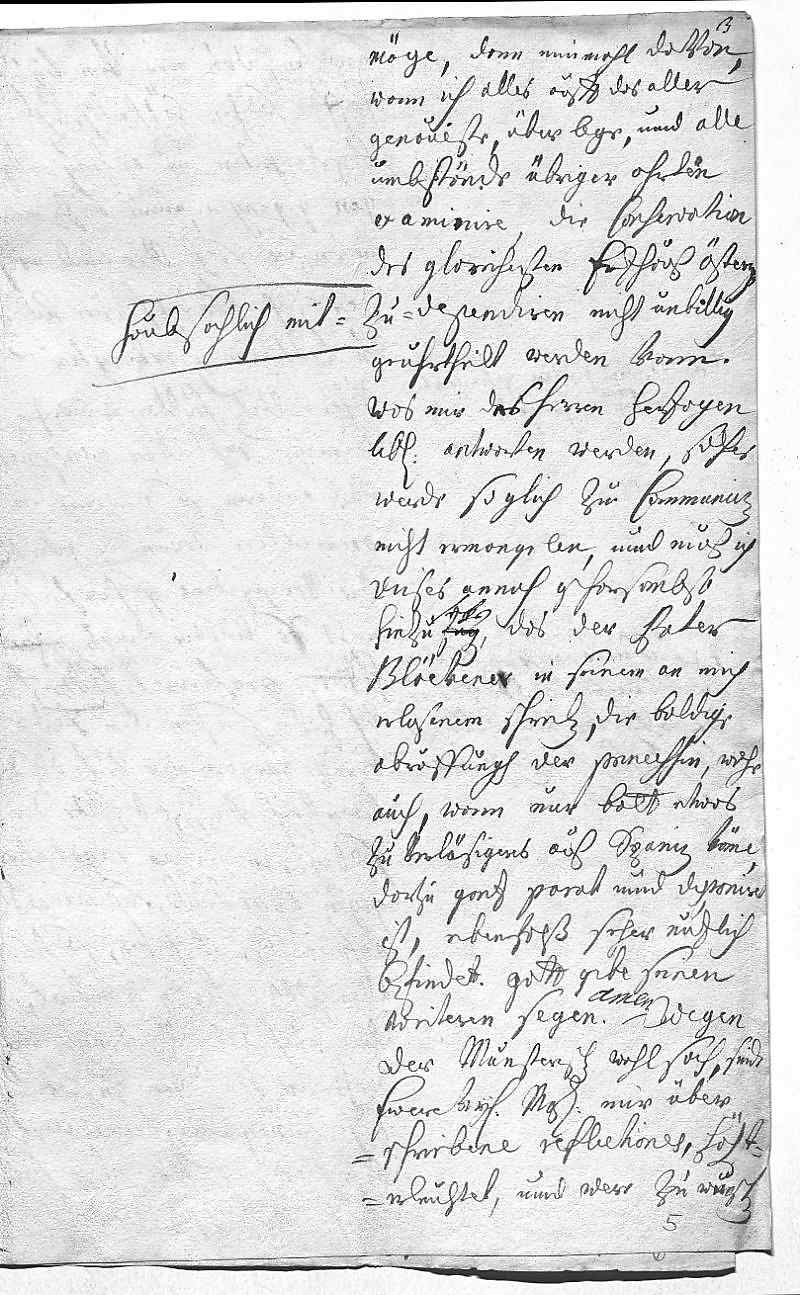 3
möge, dann nunmohl davon,
wann ich alles auß des aller
genaueste, über lege, und alle
umbstände übriger ohrten
examinire, die Conservation
des gloreichesten Ertzhauß österr
haubtsachlich mit=
Zu=dependiren nicht unbillig
geuhrtheilt werden kann.
was mir des herren hertzogen
lbd: antworten werden, solches
werde soglich zu Communicir
nicht ermangelen, und muß ich
dieses annoch gehorsambst
hinzu das der Pater
Blöckener in seinem an mich
erlasenem schreib, die baldige
abraissungh der princessin,
auch, wann nur baldt etwas
Zu verläsigeres auß Spanien käme,
dorzu gantz parat und disponirt
ist, ebenfalß seher nützlich
befindet. gott gebe seinen
weiteren segen. amen Wegen
der Münsterisch wahl sach, sindt
Ewere Kays. May: mir über
=schriebene reflectiones, höst=
=erleuchtet, und were zu
5
6